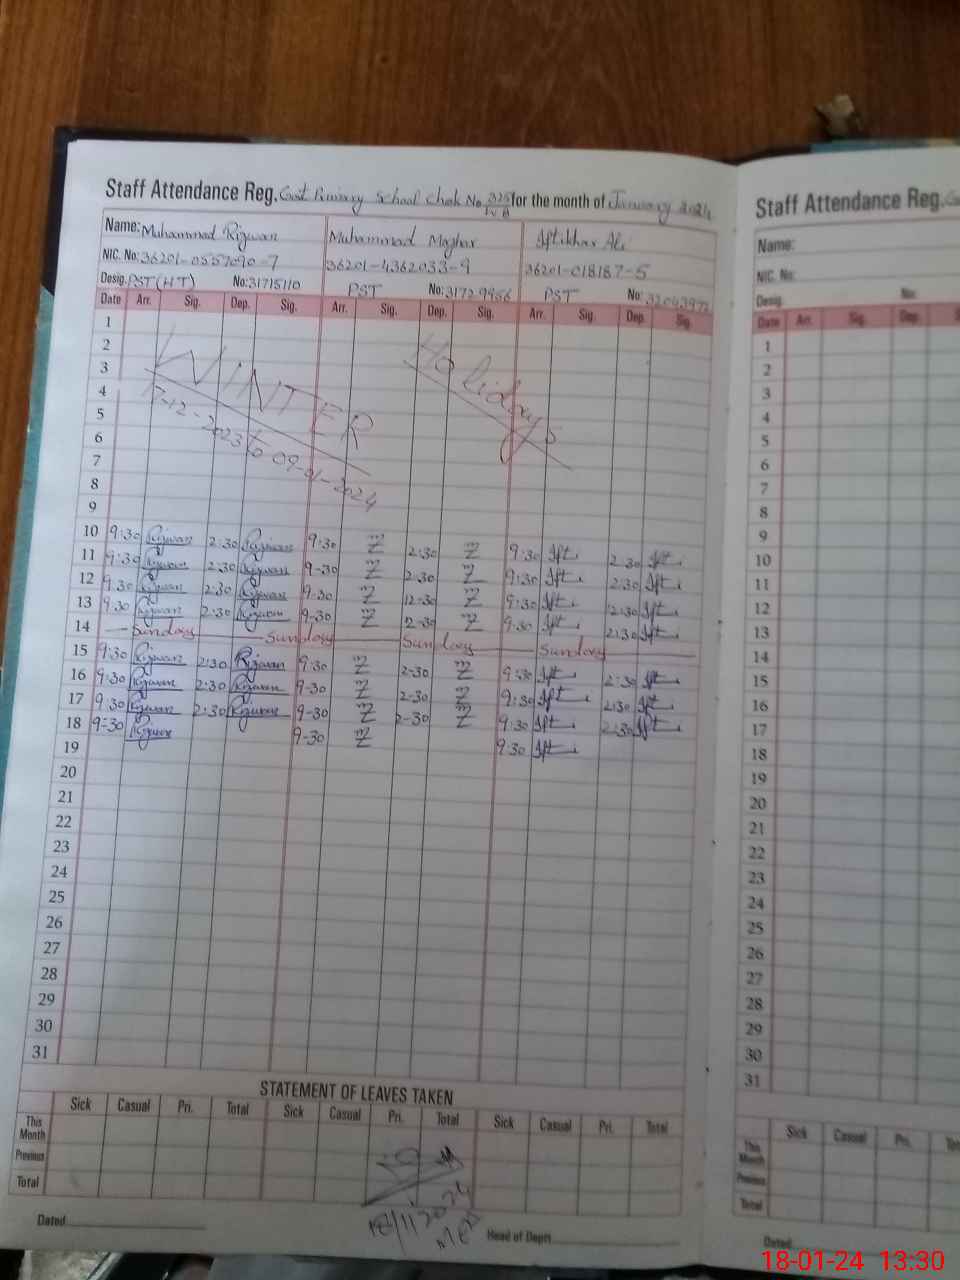 Staff Attendance Reg. Govt Primary School Chak No. 325/W.B for the month of January 2024
Name: Muhammad Rizwan Muhammad Mazhar Iftikhar Ali
NIC. No: 36201-0557090-7 36201-4362033-9 36201-018187-5
Desig. PST (HT) No: 31715110 PST No: 31729956 PST No: 32043972
Date Arr. Sig. Dep. Sig. Arr. Sig. Dep. Sig. Arr. Sig. Dep. Sig.
1
2
3
4
5
6
7
8
9
WINTER Holidays
17-12-2023 to 09-01-2024
10 9:30 Rizwan 2:30 Rizwan 9:30 2:30 9:30 Ift 2:30 Ift
11 9:30 Rizwan 2:30 Rizwan 9-30 2-30 9:30 Ift 2:30 Ift
12 9:30 Rizwan 2:30 Rizwan 9-30 12-30 9:30 Ift 2:30 Ift
13 9:30 Rizwan 2:30 Rizwan 9-30 2-30 9:30 Ift 2:30 Ift
14 Sunday Sunday Sunday Sunday
15 9:30 Rizwan 2:30 Rizwan 9:30 2-30 9:30 Ift 2:30 Ift
16 9:30 Rizwan 2:30 Rizwan 9-30 2-30 9:30 Ift 2:30 Ift
17 9:30 Rizwan 2:30 Rizwan 9-30 2-30 9:30 Ift 2:30 Ift
18 9-30 Rizwan 9-30 9:30 Ift
19
20
21
22
23
24
25
26
27
28
29
30
31
STATEMENT OF LEAVES TAKEN
Sick Casual Pri. Total Sick Casual Pri. Total Sick Casual Pri. Total
This Month
Previous
Total
18/1/2024
Dated Head of Deptt
Staff Attendance Reg.
Name:
NIC. No:
Desig. No:
Date Arr. Sig. Dep.
1
2
3
4
5
6
7
8
9
10
11
12
13
14
15
16
17
18
19
20
21
22
23
24
25
26
27
28
29
30
31
Sick Casual Pri.
This Month
Previous
Total
Dated
18-01-24 13:30